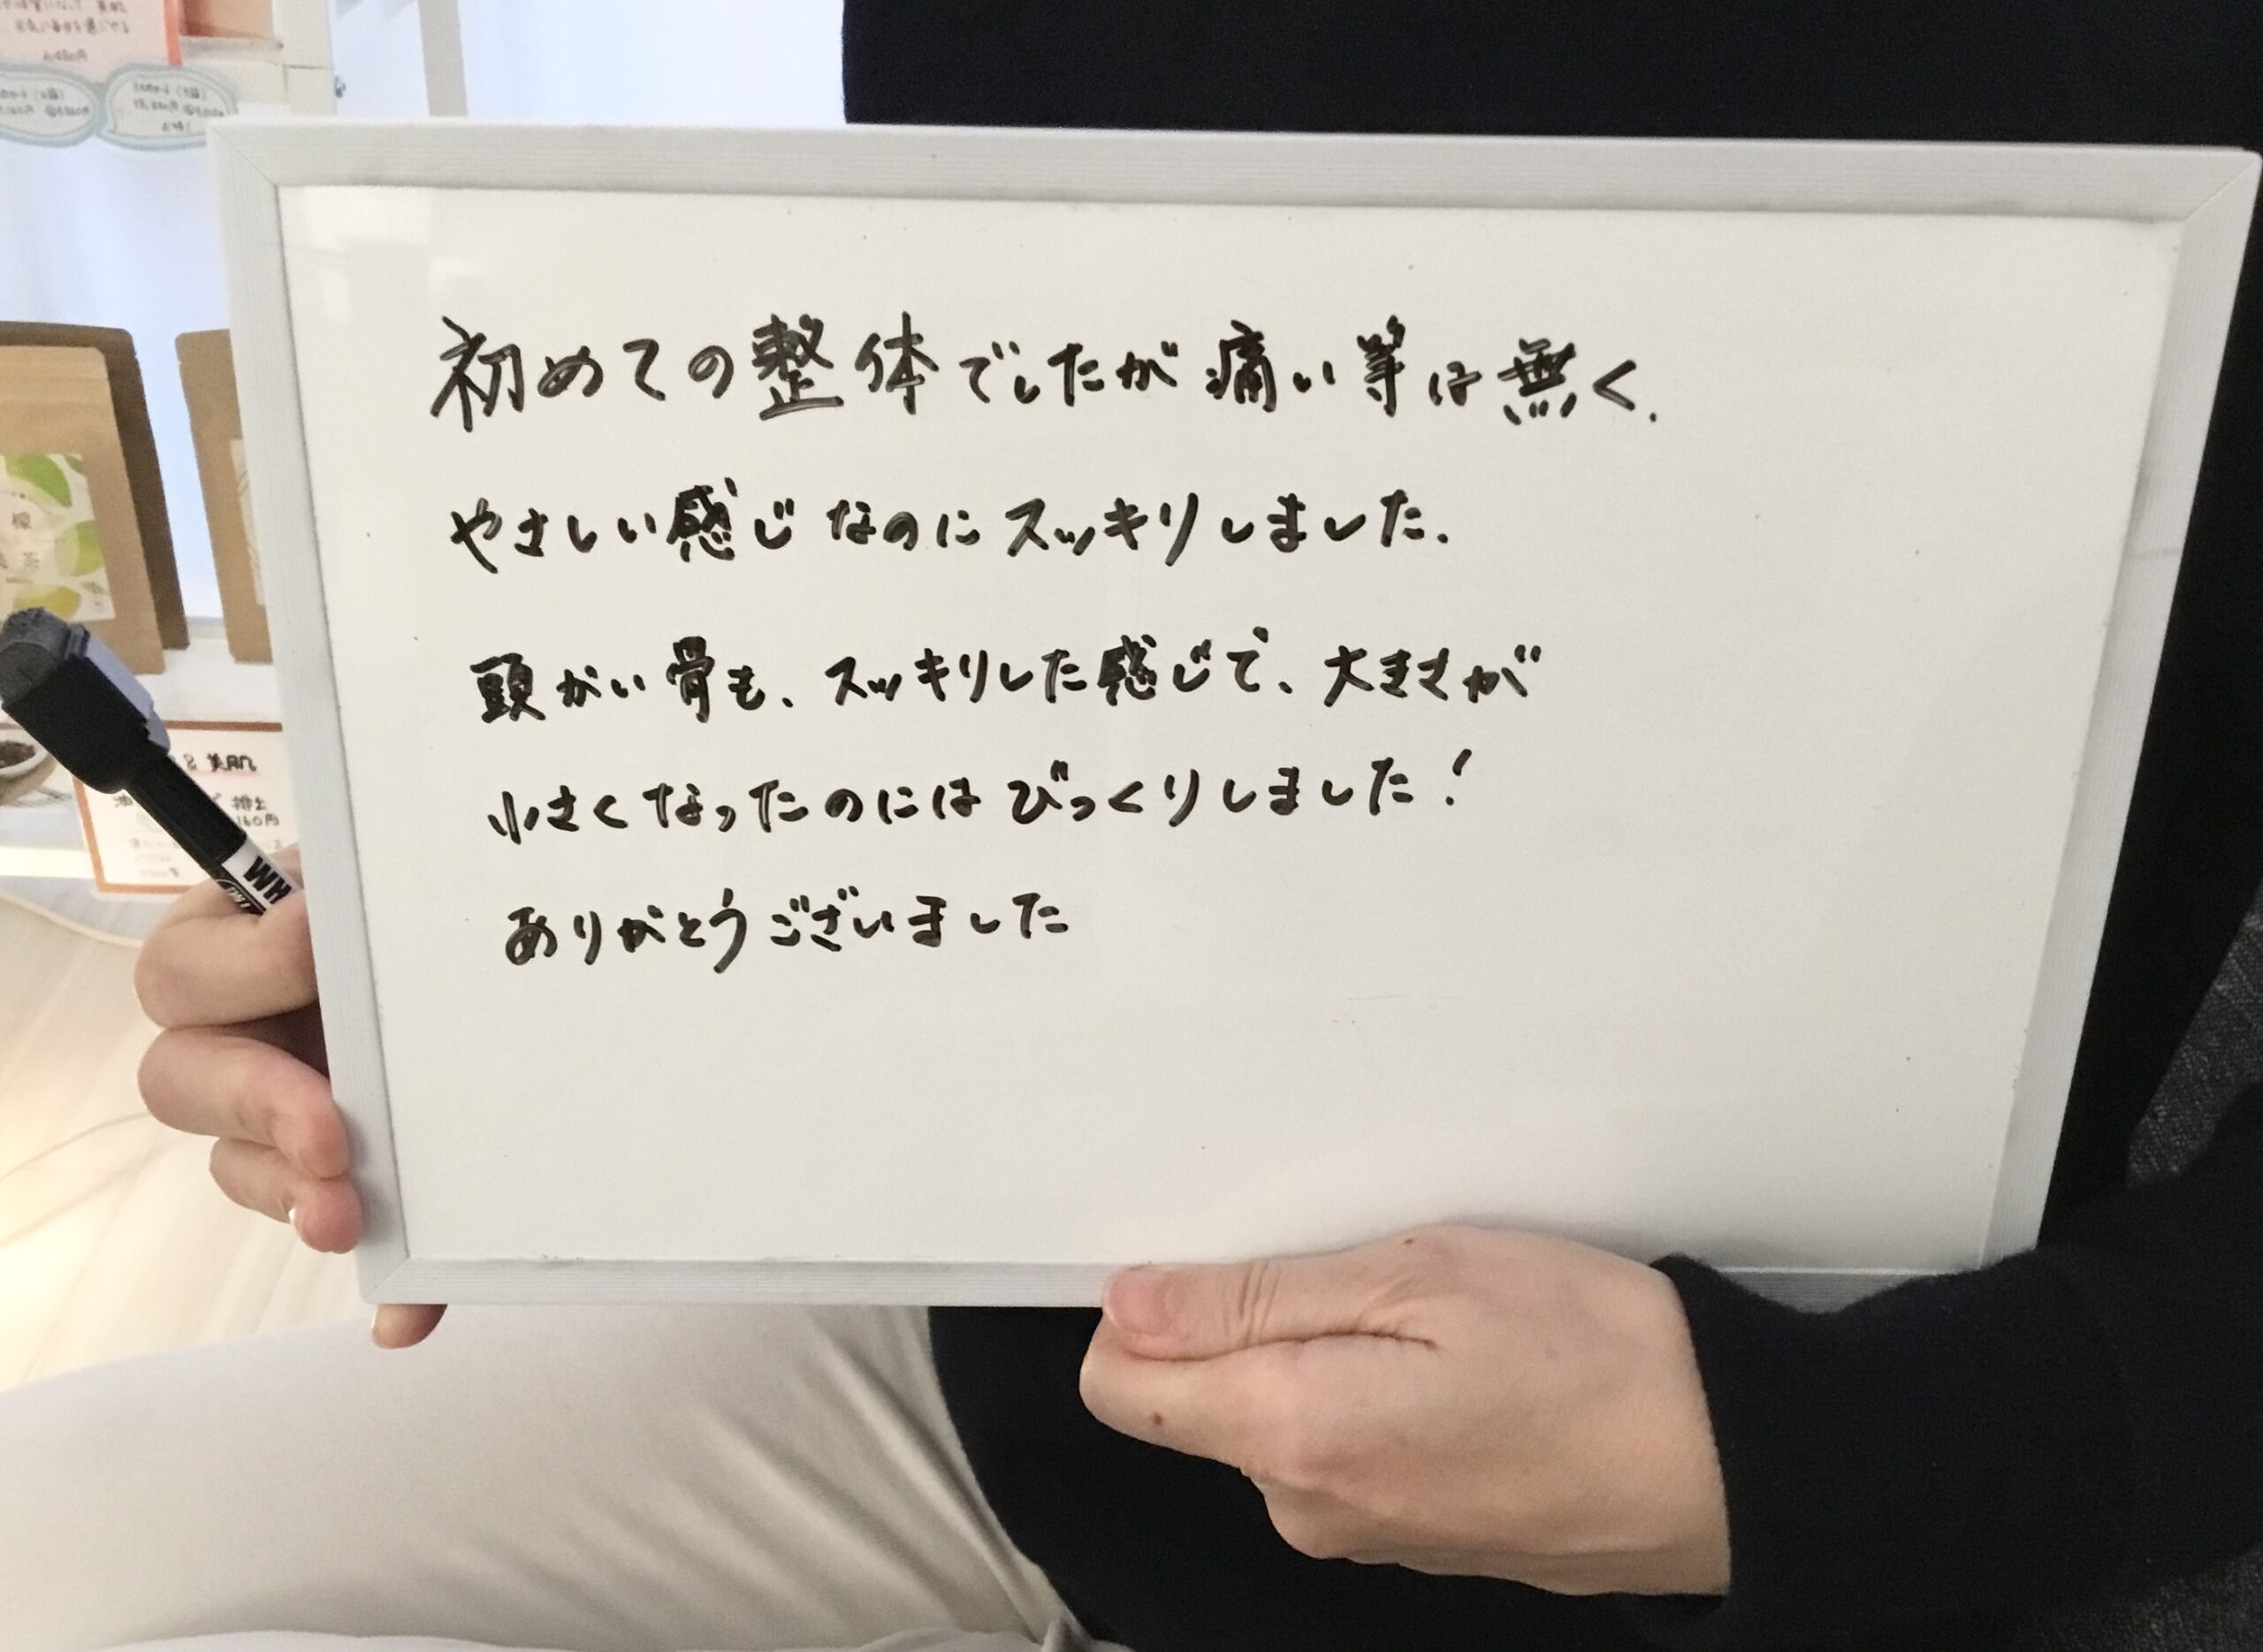 初めての整体でしたが痛い等は無く、
やさしい感じなのにスッキリしました.
頭がい骨も、スッキリした感じで、大きさが
小さくなったのにはびっくりしました!
ありがとうございました
美肌
排出
160円
茶
WH